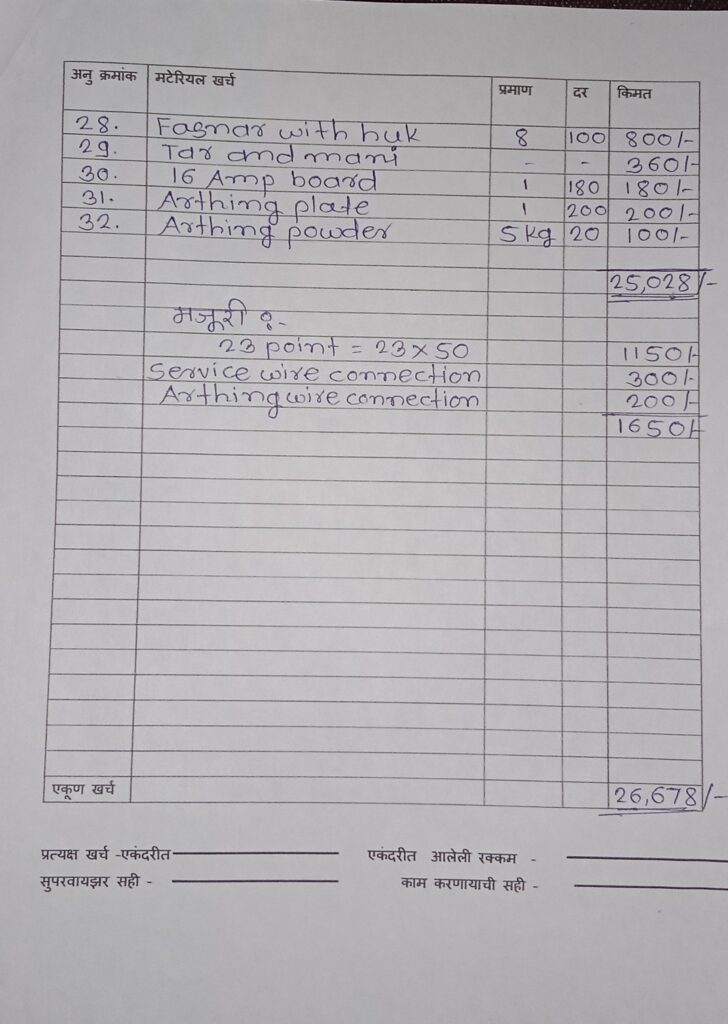 अनु क्रमांक मटेरियल खर्च प्रमाण दर किमत
28. Fasnar with huk 8 100 800/-
29. Tar and mani - - 360/-
30. 16 Amp board 1 180 180/-
31. Arthing plate 1 200 200/-
32. Arthing powder 5 kg 20 100/-
25,028/-
मजूरी :-
23 point = 23 x 50 1150/-
Service wire connection 300/-
Arthing wire connection 200/-
1650/-
एकूण खर्च 26,678/-
प्रत्यक्ष खर्च -एकंदरीत एकंदरीत आलेली रक्कम -
सुपरवायझर सही - काम करणायाची सही -